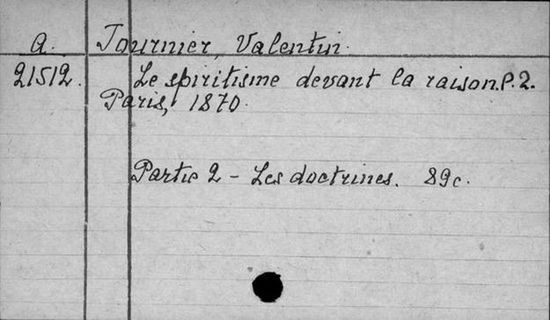 A. Tournier, Valentin.
21512. Le spiritisme devant la raison. P. 2.
Paris, 1870.
Partie 2 - Les doctrines. 89 c.